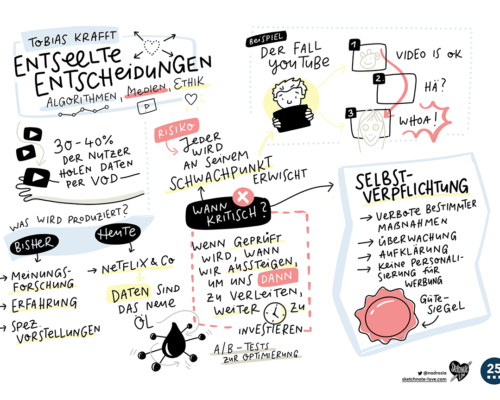 TOBIAS KRAFFT
ENTSEELTE
ENTSCHEIDUNGEN
ALGORITHMEN, MEDIEN, ETHIK
BEISPIEL
DER FALL
YOUTUBE
1
VIDEO IS OK
2
HÄ?
3
WHOA!
30-40%
DER NUTZER
HOLEN DATEN
PER VOD
RISIKO
JEDER
WIRD
AN SEINEM
SCHWACHPUNKT
ERWISCHT
WAS WIRD PRODUZIERT?
BISHER
→ MEINUNGS-
FORSCHUNG
→ ERFAHRUNG
→ SPEZ.
VORSTELLUNGEN
HEUTE
→ NETFLIX & CO
DATEN SIND
DAS NEUE
ÖL
WANN
KRITISCH?
WENN GEPRÜFT
WIRD, WANN
WIR AUSSTEIGEN,
UM UNS DANN
ZU VERLEITEN,
WEITER ZU
INVESTIEREN
A/B-TESTS
ZUR OPTIMIERUNG
SELBST-
VERPFLICHTUNG
→ VERBOTE BESTIMMTER
MAßNAHMEN
→ ÜBERWACHUNG
→ AUFKLÄRUNG
→ KEINE PERSONALI-
SIERUNG FÜR
WERBUNG
GÜTE-
SIEGEL
@nadrosia
sketchnote-love.com
25